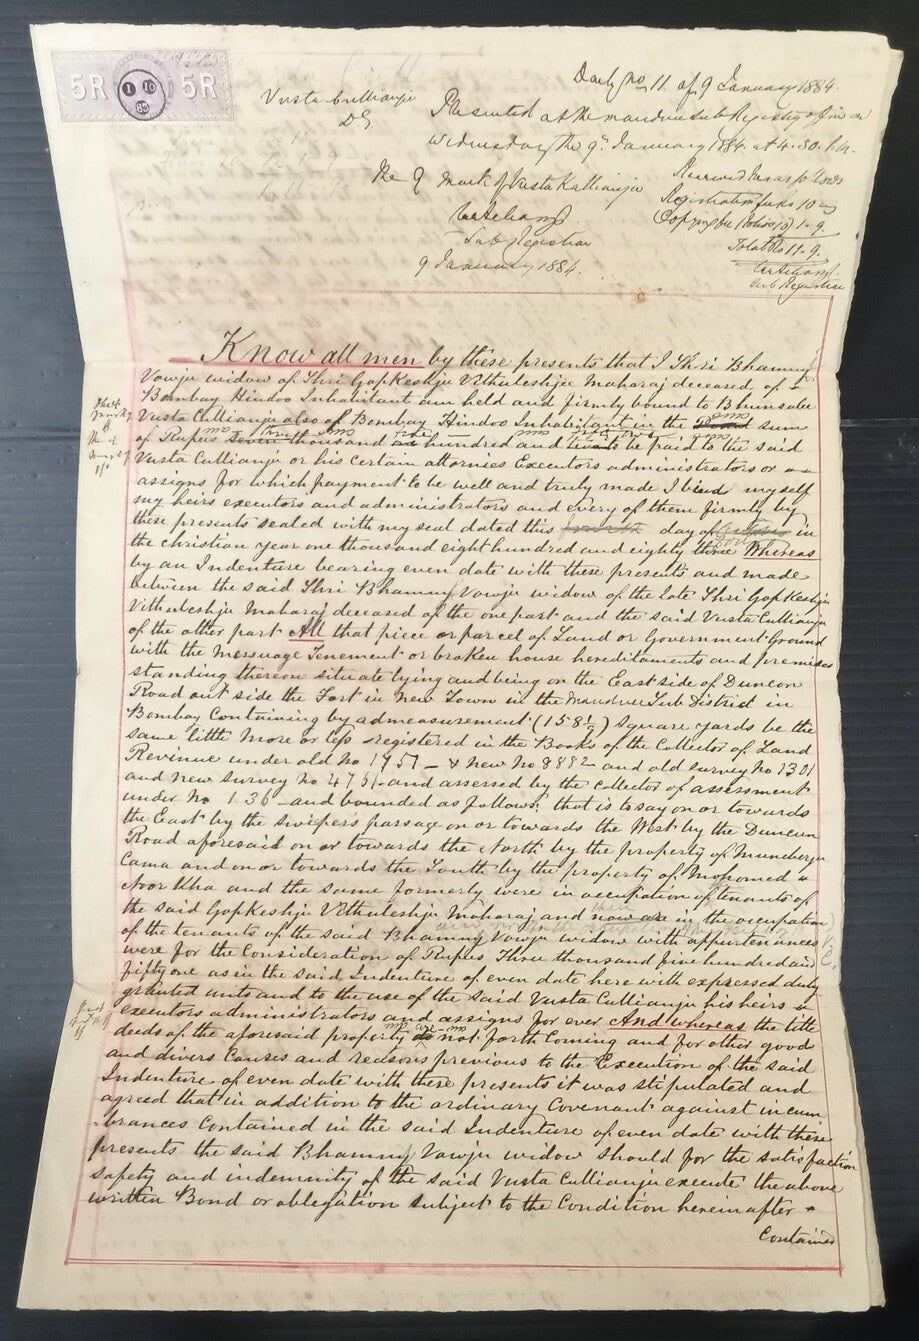 5R 5R
1 10
Daily no 11 of 9 January 1884.
Vusta Cullianju
Presented at the mandvie Sub Registry office on
Wednesday the 9th January 1884 at 4.30 P.M.
The mark of Vusta Kallianju
Received fees as follows
Registration fee Rs 10
Copying fee (folios 10) 1-9
Total Rs 11-9
Sub Registrar
9 January 1884.
Sub Registrar
Know all men by these presents that I Shri Bhamny
Vowju widow of Shri GopKeshju Vithuleshju Maharaj deceased of
Bombay Hindoo Inhabitant am held and firmly bound to Bhunsalee
Vusta Cullianju also of Bombay Hindoo Inhabitant in the sum
of Rupees thousand hundred and to be paid to the said
Vusta Cullianju or his certain attornies Executors administrators or
assigns for which payment to be well and truly made I bind myself
my heirs executors and administrators and every of them firmly by
these presents sealed with my seal dated this day of in
the christian year one thousand eight hundred and eighty Whereas
by an Indenture bearing even date with these presents and made
between the said Shri Bhamny Vowju widow of the Late Shri GopKeshju
Vithuleshju Maharaj deceased of the one part and the said Vusta Cullianju
of the other part All that piece or parcel of Land or Government Ground
with the Messuage Tenement or broken house hereditaments and premises
standing thereon situate lying and being on the East side of Duncan
Road out side the Fort in New Town in the Mandvie Sub District in
Bombay Containing by admeasurement (158 1/9) Square yards be the
same little more or less registered in the Books of the Collector of Land
Revenue under old No 1957 & New No 8882 and old survey No 1301
and new survey No 4761 and assessed by the collector of assessment
under No 136 and bounded as follows that is to say on or towards
the East by the swipers passage on or towards the West by the Duncan
Road aforesaid on or towards the North by the property of Muncherju
Cama and on or towards the South by the property of Mohomed
Noor Kha and the same formerly were in occupation of tenants of
the said GopKeshju Vithuleshju Maharaj and now are in the occupation
of the tenants of the said Bhamny Vowju widow with appurtenances
were for the Consideration of Rupees Three thousand five hundred and
fifty one as in the said Indenture of even date here with expressed duly
granted unto and to the use of the said Vusta Cullianju his heirs
executors administrators and assigns for ever And whereas the title
deeds of the aforesaid property are not forth coming and for other good
and divers Causes and reasons previous to the Execution of the said
Indenture of even date with these presents it was stipulated and
agreed that in addition to the ordinary Covenant against incum
brances Contained in the said Indenture of even date with these
presents the said Bhamny Vowju widow should for the satisfaction
safety and indemnity of the said Vusta Cullianju execute the above
written Bond or oblegation subject to the Condition hereinafter
Contained